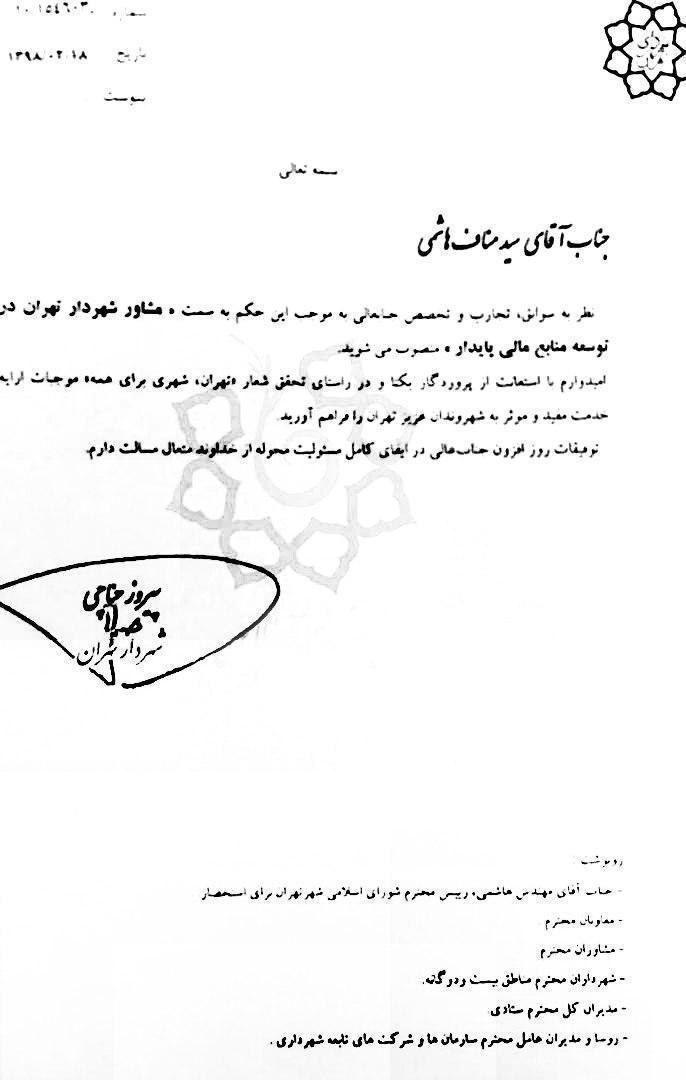 شماره ۱۰/۱۵۴۶۰۳
تاریخ ۱۳۹۸/۰۲/۱۸
پیوست
بسمه تعالی
جناب آقای سید مناف هاشمی
نظر به سوابق، تجارب و تخصص جنابعالی به موجب این حکم به سمت « مشاور شهردار تهران در
توسعه منابع مالی پایدار » منصوب می شوید.
امیدوارم با استعانت از پروردگار یکتا و در راستای تحقق شعار «تهران، شهری برای همه» موجبات ارایه
خدمت مفید و موثر به شهروندان عزیز تهران را فراهم آورید.
توفیقات روز افزون جنابعالی در ایفای کامل مسئولیت محوله از خداوند متعال مسالت دارم.
پیروز حناچی
شهردار تهران
رونوشت:
- جناب آقای مهندس هاشمی، رییس محترم شورای اسلامی شهر تهران برای استحضار
- معاونان محترم
- مشاوران محترم
- شهرداران محترم مناطق بیست ودوگانه.
- مدیران کل محترم ستادی
- روسا و مدیران عامل محترم سازمان ها و شرکت های تابعه شهرداری .